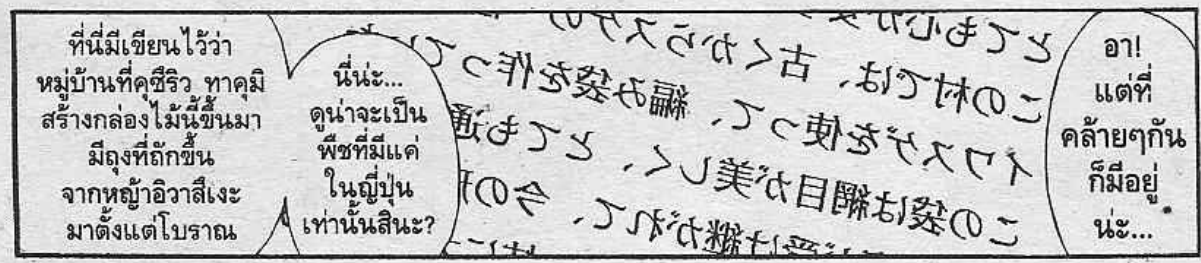 ที่นี่มีเขียนไว้ว่า
หมู่บ้านที่คุซึริว ทาคุมิ
สร้างกล่องไม้นี้ขึ้นมา
มีถุงที่ถักขึ้น
จากหญ้าอิวาสึเงะ
มาตั้งแต่โบราณ
นี่น่ะ...
ดูน่าจะเป็น
พืชที่มีแค่
ในญี่ปุ่น
เท่านั้นสินะ?
とても心が
この村では、古くからスゲの
イワスゲを使って、編み袋を作って
この袋は網目が美しく、とても通
受け継がれて、今の
อา!
แต่ที่
คล้ายๆกัน
ก็มีอยู่
น่ะ...